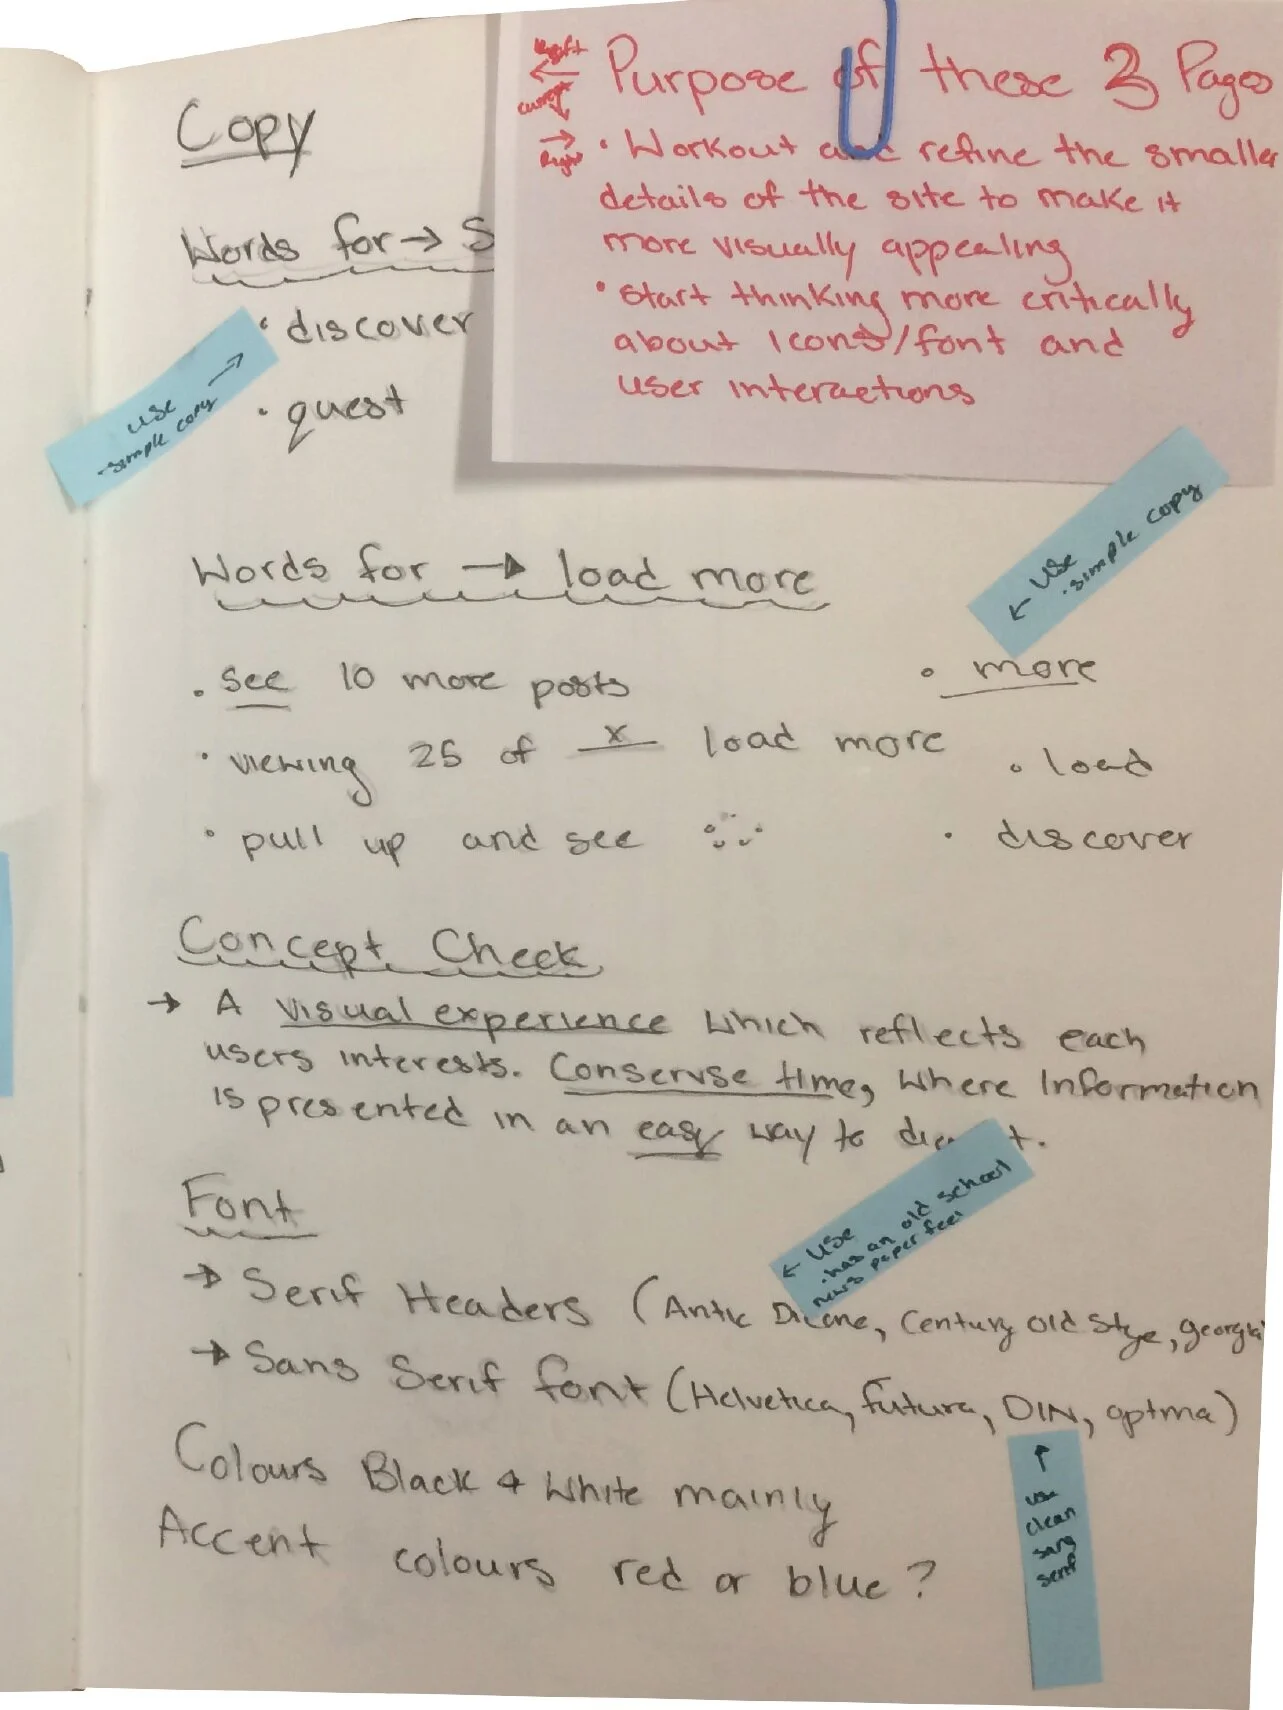 Copy
Words for → S
• discover
• quest
use
-simple copy
left
current
Right
Purpose of these 3 Pages
• Workout and refine the smaller
details of the site to make it
more visually appealing
• Start thinking more critically
about Icons/font and
user interactions
← use
• simple copy
Words for → load more
• see 10 more posts
• viewing 25 of x load more
• pull up and see
• more
• load
• discover
Concept Check
→ A visual experience which reflects each
users interests. Conservse time, where Information
is presented in an easy way to
Font
← use
• has an old school
news paper feel
→ Serif Headers (Antic Didone, Century Old Stye, georgia
→ Sans Serif font (Helvetica, futura, DIN, optma)
↑
use
clean
sans
serif
Colours Black & White mainly
Accent colours red or blue?